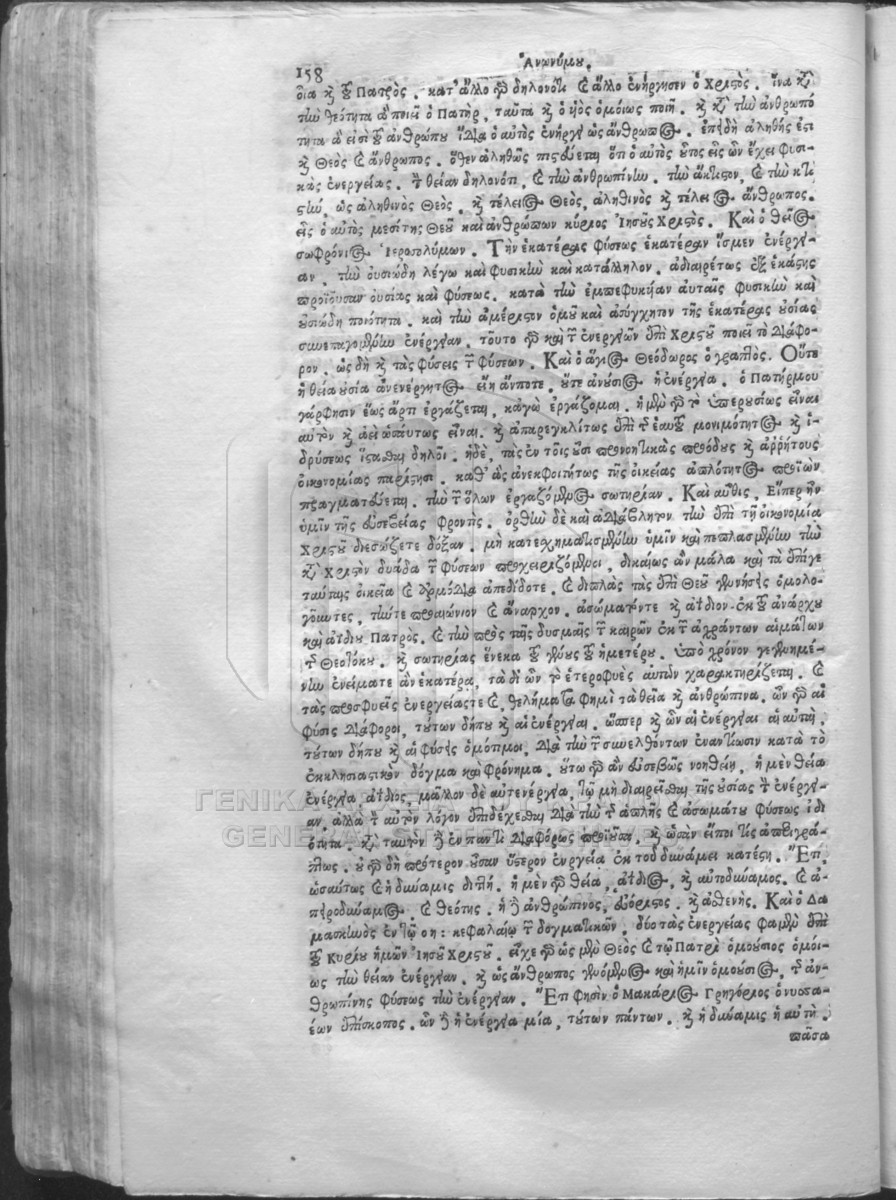 158
Ἀνωνύμου.
δια καὶ τοῦ Πατρός. κατ' ἄλλο γὰρ δηλονότι καὶ ἄλλο ἐνήργησεν ὁ Χριστός. ἵνα κατὰ
τὴν θεότητα ἃ ποιεῖ ὁ Πατὴρ, ταῦτα καὶ ὁ υἱὸς ὁμοίως ποιῇ. καὶ κατὰ τὴν ἀνθρωπό
τητα ἅ εἰσι τοῦ ἀνθρώπου ἴδια ὁ αὐτὸς ἐνήργει ὡς ἄνθρωπος. ἐπειδὴ ἀληθής ἐστι
καὶ Θεὸς καὶ ἄνθρωπος. ὅθεν ἀληθῶς πιστεύεται ὅτι ὁ αὐτὸς οὗτος εἷς ὢν ἔχει φυσι-
κὰς ἐνεργείας. τὴν θείαν δηλονότι, καὶ τὴν ἀνθρωπίνην. τὴν ἄκτιστον, καὶ τὴν κτι
στήν, ὡς ἀληθινὸς Θεὸς, καὶ τέλειος Θεὸς, ἀληθινὸς καὶ τέλειος ἄνθρωπος.
εἷς ὁ αὐτὸς μεσίτης Θεοῦ καὶ ἀνθρώπων κύριος Ἰησοῦς Χριστός. Καὶ ὁ θεῖος
σωφρόνιος Ἱεροσολύμων. Τὴν ἑκατέρας φύσεως ἑκατέραν ἴσμεν ἐνέργει-
αν. τὴν οὐσιώδη λέγω καὶ φυσικὴν καὶ κατάλληλον. ἀδιαιρέτως ἐξ ἑκάστης
προϊοῦσαν οὐσίας καὶ φύσεως. κατὰ τὴν ἐμπεφυκυῖαν αὐταῖς φυσικὴν καὶ
οὐσιώδη ποιότητα. καὶ τὴν ἀμέριστον ὁμοῦ καὶ ἀσύγχητον τῆς ἑκατέρας οὐσίας
συνεπαγομένην ἐνέργειαν. τοῦτο γὰρ καὶ τῶν ἐνεργειῶν ἐπὶ Χριστοῦ ποιεῖ τὸ διάφο-
ρον. ὡς δὴ καὶ τὰς φύσεις τῶν φύσεων. Καὶ ὁ ἅγιος Θεόδωρος ὁ γραπτός. Οὔτε
ἡ θεία οὐσία ἀνενέργητος εἴη ἄν ποτε. οὔτε ἀνούσιος ἡ ἐνέργεια. ὁ Πατήρ μου
γάρ φησιν ἕως ἄρτι ἐργάζεται, κἀγὼ ἐργάζομαι. ἡ μὲν γὰρ τὸ ὑπερουσίως εἶναι
αὐτὸν καὶ ἀεὶ ὡσαύτως εἶναι. καὶ ἀπαρεγκλίτως ἐπὶ τῆς ἑαυτοῦ μονιμότητος καὶ ἱ-
δρύσεως ἵστασθαι δηλοῖ. ἡ δὲ, τὰς ἐν τοῖς οὖσι προνοητικὰς προόδους καὶ ἀρρήτους
οἰκονομίας παρίστησι. καθ' ἃς ἀνεκφοιτήτως τῆς οἰκείας ἁπλότητος προϊὼν
πραγματεύεται. τὴν τῶν ὅλων ἐργαζόμενος σωτηρίαν. Καὶ αὖθις, Εἴπερ ἦν
ὑμῖν τῆς εὐσεβείας φροντὶς. ὀρθὴν δὲ καὶ ἀδιάβλητον τὴν ἐπὶ τῇ οἰκονομίᾳ
Χριστοῦ διεσώζετε δόξαν. μὴ κατεσχηματισμένην ὑμῖν καὶ πεπλασμένην τὴν
κατὰ Χριστὸν δυάδα τῶν φύσεων προχειριζόμενοι, δικαίως ἂν μάλα καὶ τὰ ἐπί γε
ταύταις οἰκεῖα καὶ ἁρμόδια ἀπεδίδοτε. καὶ διπλᾶς τὰς ἐπὶ Θεοῦ γεννήσεις ὁμολο-
γοῦντες, τήν τε προαιώνιον καὶ ἄναρχον. ἀσώματόν τε καὶ ἀΐδιον ἐκ τοῦ ἀνάρχου
καὶ ἀϊδίου Πατρός. καὶ τὴν πρὸς ταῖς δυσμαῖς τῶν καιρῶν ἐκ τῶν ἀχράντων αἱμάτων
τῆς Θεοτόκου. καὶ σωτηρίας ἕνεκα τοῦ γένους τοῦ ἡμετέρου. ὑπὸ χρόνον γεγενημέ-
νην ἐνείματε ἂν ἑκατέρᾳ, τὰ δι' ὧν τὸ ἑτεροφυὲς αὐτῶν χαρακτηρίζεται. καὶ
τὰς προσφυεῖς ἐνεργείας τε καὶ, θελήματά φημι τὰ θεῖα καὶ ἀνθρώπινα. ὧν γὰρ αἱ
φύσεις διάφοροι, τούτων δήπου καὶ αἱ ἐνέργειαι. ὥσπερ καὶ ὧν αἱ ἐνέργειαι αἱ αὐταὶ,
τούτων δήπου καὶ αἱ φύσεις ὁμότιμοι. διὰ τὴν τῶν συνελθόντων ἐναντίωσιν κατὰ τὸ
ἐκκλησιαστικὸν δόγμα καὶ φρόνημα. οὕτω γὰρ ἂν εὐσεβῶς νοηθείη, ἡ μὲν θεία
ἐνέργεια ἀΐδιος, μᾶλλον δὲ αὐτενέργεια, τῷ μὴ διαιρεῖσθαι τῆς οὐσίας τὴν ἐνέργει-
αν ἀλλὰ τὸν αὐτὸν λόγον ἐπιδέχεσθαι διὰ τὴν τῆς ἁπλῆς καὶ ἀσωμάτου φύσεως ἰδι
ότητα. κατὰ ταὐτὸν δὲ ἐν παντὶ διαφόρως προϊοῦσα, καὶ ὡσὰν εἴποι τις ἀπεριγρά-
πτως. οὐ γὰρ δὴ πρότερον οὖσαν ὕστερον ἐνεργείᾳ ἐκ τοῦ δυνάμει κατέστη. Ἔτι
ὡσαύτως καὶ ἡ δύναμις διπλῆ. ἡ μὲν γὰρ θεία, ἀΐδιος, καὶ αὐτοδύναμος. καὶ ἀ-
πειροδύναμος, καὶ θεότης. ἡ δὲ ἀνθρώπινος, εὐόριστος. καὶ ἀσθενής. Καὶ ὁ Δα
μασκηνὸς ἐν τῷ ο η: κεφαλαίῳ τῶν δογματικῶν, δύο τὰς ἐνεργείας φαμὲν ἐπὶ
τοῦ Κυρίου ἡμῶν Ἰησοῦ Χριστοῦ. εἶχε γὰρ ὡς μὲν Θεὸς καὶ τῷ Πατρὶ ὁμοούσιος ὁμοί-
ως τὴν θείαν ἐνέργειαν. καὶ ὡς ἄνθρωπος γενόμενος καὶ ἡμῖν ὁμοούσιος, τῆς ἀν-
θρωπίνης φύσεως τὴν ἐνέργειαν. Ἔτι φησὶν ὁ Μακάριος Γρηγόριος ὁ νυσσα-
έων ἐπίσκοπος. ὧν δὲ ἡ ἐνέργεια μία, τούτων πάντων. καὶ ἡ δύναμις ἡ αὐτή.
πᾶσα
ΓΕΝΙΚΑ
GENERAL STATE